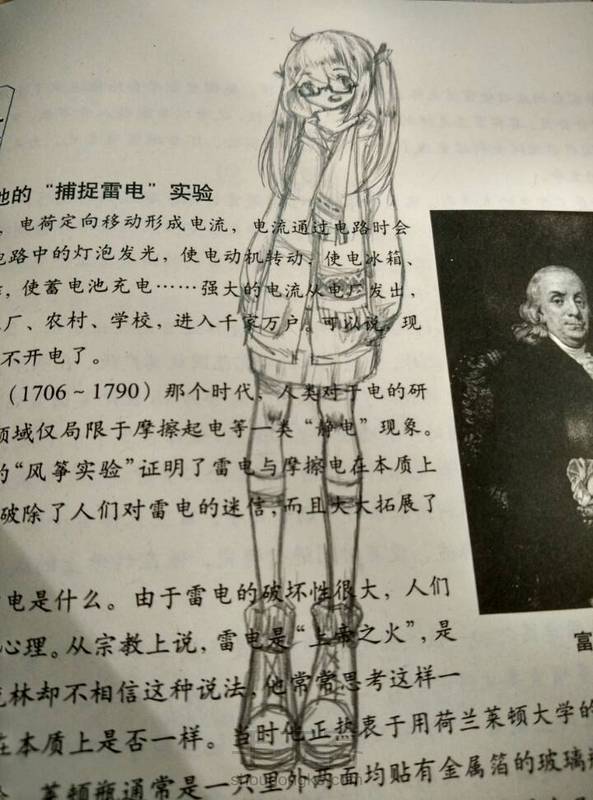 他的“捕捉雷电”实验
，电荷定向移动形成电流，电流通过电路时会
电路中的灯泡发光，使电动机转动、使电冰箱、
，使蓄电池充电……强大的电流从电厂发出，
厂、农村、学校，进入千家万户。可以说，现
不开电了。
（1706～1790）那个时代，人类对于电的研
领域仅局限于摩擦起电等一类“静电”现象。
的“风筝实验”证明了雷电与摩擦电在本质上
破除了人们对雷电的迷信，而且大大拓展了
电是什么。由于雷电的破坏性很大，人们
心理。从宗教上说，雷电是“上帝之火”，是
克林却不相信这种说法，他常常思考这样一
在本质上是否一样。当时他正热衷于用荷兰莱顿大学的
莱顿瓶通常是一只里外两面均贴有金属箔的玻璃
富